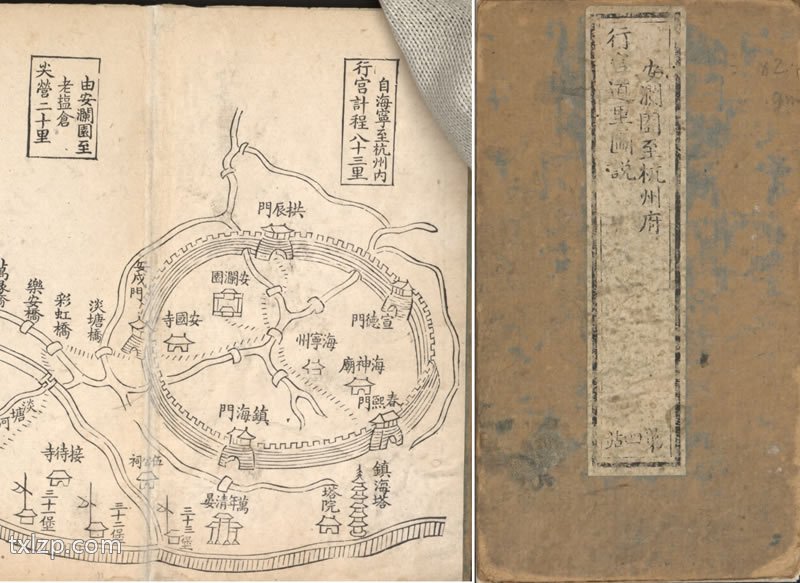 自海寧至杭州內
行宮計程八十三里
由安瀾園至
老塩倉
尖營二十里
拱辰門
安瀾園
宣德門
安國寺
海寧州
海神廟
春熙門
鎮海門
安戍門
淡塘橋
彩虹橋
樂安橋
淡塘河
接待寺
伍公祠
鎮海塔
塔院
萬年清晏
三十三堡
三十二堡
三十一堡
txlzp.com
安瀾園至杭州府
行宮道里圖說
第四站